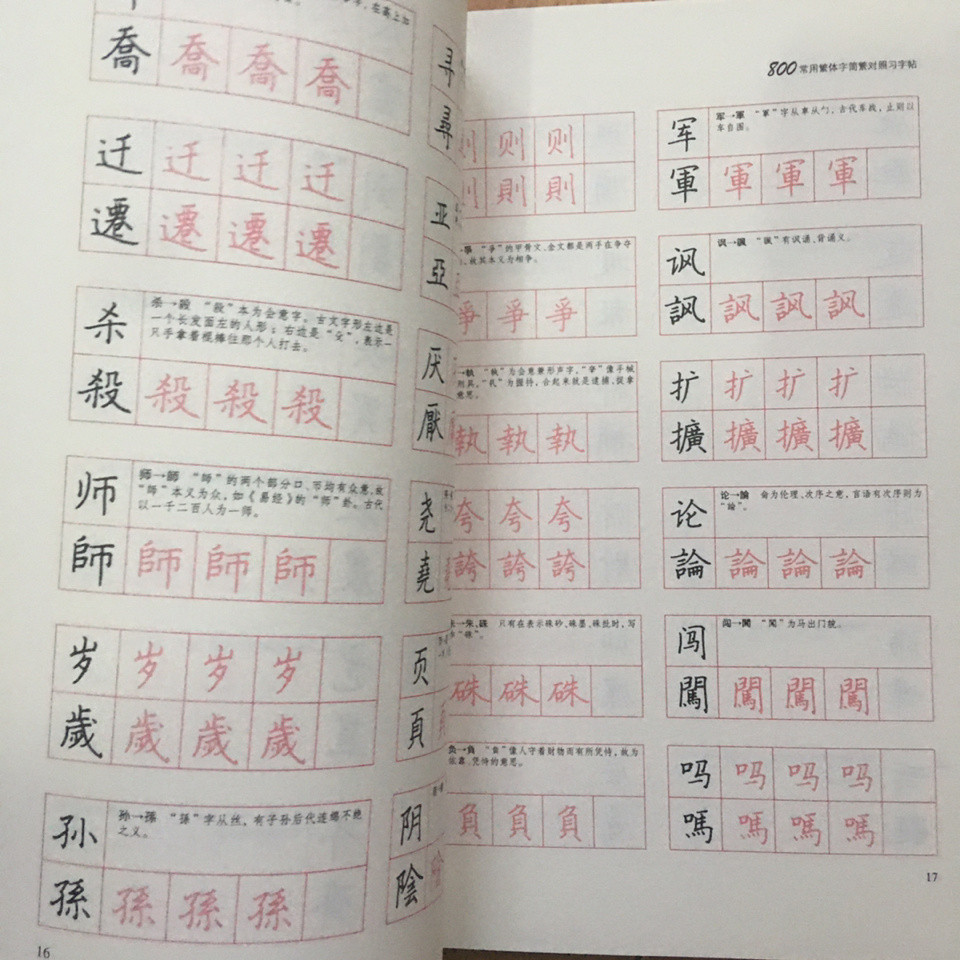 在高上加
喬 喬 喬 喬
迁 迁 迁 迁
遷 遷 遷 遷
杀
杀→殺 “殺”本为会意字。古文字形左边是
一个长发面左的人形；右边是“殳”，表示一
只手拿着棍棒往那个人打去。
殺 殺 殺 殺
师
师→師 “師”的两个部分口、币均有众意，故
“師”本义为众，如《易经》的“师”卦。古代
以一千二百人为一师。
師 師 師 師
岁 岁 岁 岁
歲 歲 歲 歲
孙
孙→孫 “孫”字从丝，有子孙后代连绵不绝
之义。
孫 孫 孫 孫
16
寻
尋
亚
亞
厌
厭
尧
堯
页
頁
阴
陰
800常用繁体字简繁对照习字帖
则 则 则
則 則 則
爭 “爭”的甲骨文、金文都是两手在争夺
故其本义为相争。
爭 爭 爭
→執 “執”为会意兼形声字，“幸”像手械
刑具，“丮”为握持，合起来就是逮捕、捉拿
意思。
執 執 執
夸 夸 夸
誇 誇 誇
朱→朱、硃 只有在表示硃砂、硃墨、硃批时，写
“硃”。
硃 硃 硃
负→負 “負”像人守着财物而有所凭恃，故为
依靠、凭恃的意思。
負 負 負
军
军→軍 “軍”字从車从勹，古代车战，止则以
车自围。
軍 軍 軍 軍
讽
讽→諷 “諷”有讽诵、背诵义。
諷 諷 諷 諷
扩 扩 扩 扩
擴 擴 擴 擴
论
论→論 侖为伦理、次序之意，言语有次序则为
“論”。
論 論 論 論
闯
闯→闖 “闖”为马出门貌。
闖 闖 闖 闖
吗 吗 吗 吗
嗎 嗎 嗎 嗎
17